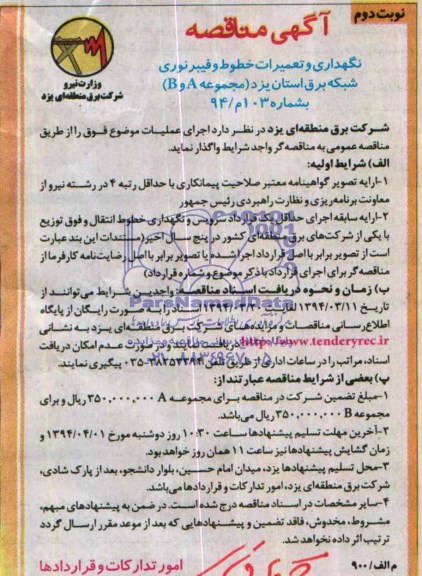 نوبت دوم
آگهی مناقصه
وزارت نیرو
شرکت برق منطقه‌ای یزد
نگهداری و تعمیرات خطوط و فیبر نوری
شبکه برق استان یزد (مجموعه A و B)
بشماره ۱۰۳م/۹۴
شرکت برق منطقه‌ای یزد در نظر دارد اجرای عملیات موضوع فوق را از طریق
مناقصه عمومی به مناقصه گر واجد شرایط واگذار نماید.
الف) شرایط اولیه:
۱-ارایه تصویر گواهینامه معتبر صلاحیت پیمانکاری با حداقل رتبه ۴ در رشته نیرو از
معاونت برنامه ریزی و نظارت راهبردی رئیس جمهور
۲-ارایه سابقه اجرای حداقل یک قرارداد سرویس و نگهداری خطوط انتقال و فوق توزیع
با یکی از شرکت‌های برق منطقه‌ای کشور در پنج سال اخیر (مستندات این بند عبارت
است از تصویر برابر با اصل قرارداد اجرا شده یا تصویر برابر با اصل رضایت‌نامه کارفرما از
مناقصه گر برای اجرای قرارداد با ذکر موضوع و شماره قرارداد)
ب) زمان و نحوه دریافت اسناد مناقصه: واجدین شرایط می‌توانند از
تاریخ ۱۳۹۴/۰۳/۱۱ لغایت اسناد را به صورت رایگان از پایگاه
اطلاع رسانی مناقصات و مزایده‌های شرکت برق منطقه‌ای یزد به نشانی
http://www.tenderyrec.ir دریافت نمایند و در صورت عدم امکان دریافت
اسناد، مراتب را در ساعات اداری از طریق تلفن پیگیری نمایند.
پ) بعضی از شرایط مناقصه عبارتند از:
۱-مبلغ تضمین شرکت در مناقصه برای مجموعه A ۳۵۰.۰۰۰.۰۰۰ ریال و برای
مجموعه B ۳۵۰.۰۰۰.۰۰۰ ریال می‌باشد.
۲-آخرین مهلت تسلیم پیشنهادها ساعت ۱۰:۳۰ روز دوشنبه مورخ ۱۳۹۴/۰۴/۰۱ و
زمان گشایش پیشنهادها نیز ساعت ۱۱ همان روز خواهد بود.
۳-محل تسلیم پیشنهادها یزد، میدان امام حسین، بلوار دانشجو، بعد از پارک شادی،
شرکت برق منطقه‌ای یزد، امور تدارکات و قراردادها می‌باشد.
۴-سایر مشخصات در اسناد مناقصه درج شده است. در ضمن به پیشنهادهای مبهم،
مشروط، مخدوش، فاقد تضمین و پیشنهادهایی که بعد از موعد مقرر ارسال گردد
ترتیب اثر داده نخواهد شد.
م الف/ ۹۰۰
امور تدارکات و قراردادها
ParaNamadData